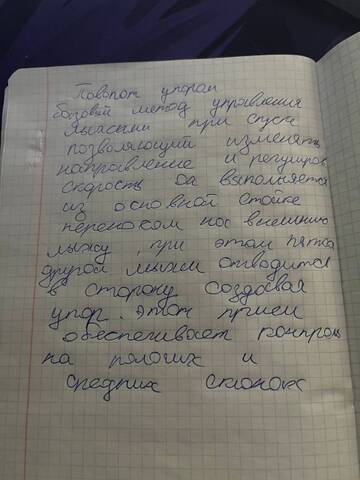 Поворот упором
базовый метод управления
лыжами при спуске
позволяющий изменять
направление и регулиров
скорость Он выполняется
из основной стойки
переносом на внешнюю
лыжу, при этом пятка
другой лыжи отводится
в сторону создавая
упор. Этот прием
обеспечивает контроль
на пологих и
средних склонах